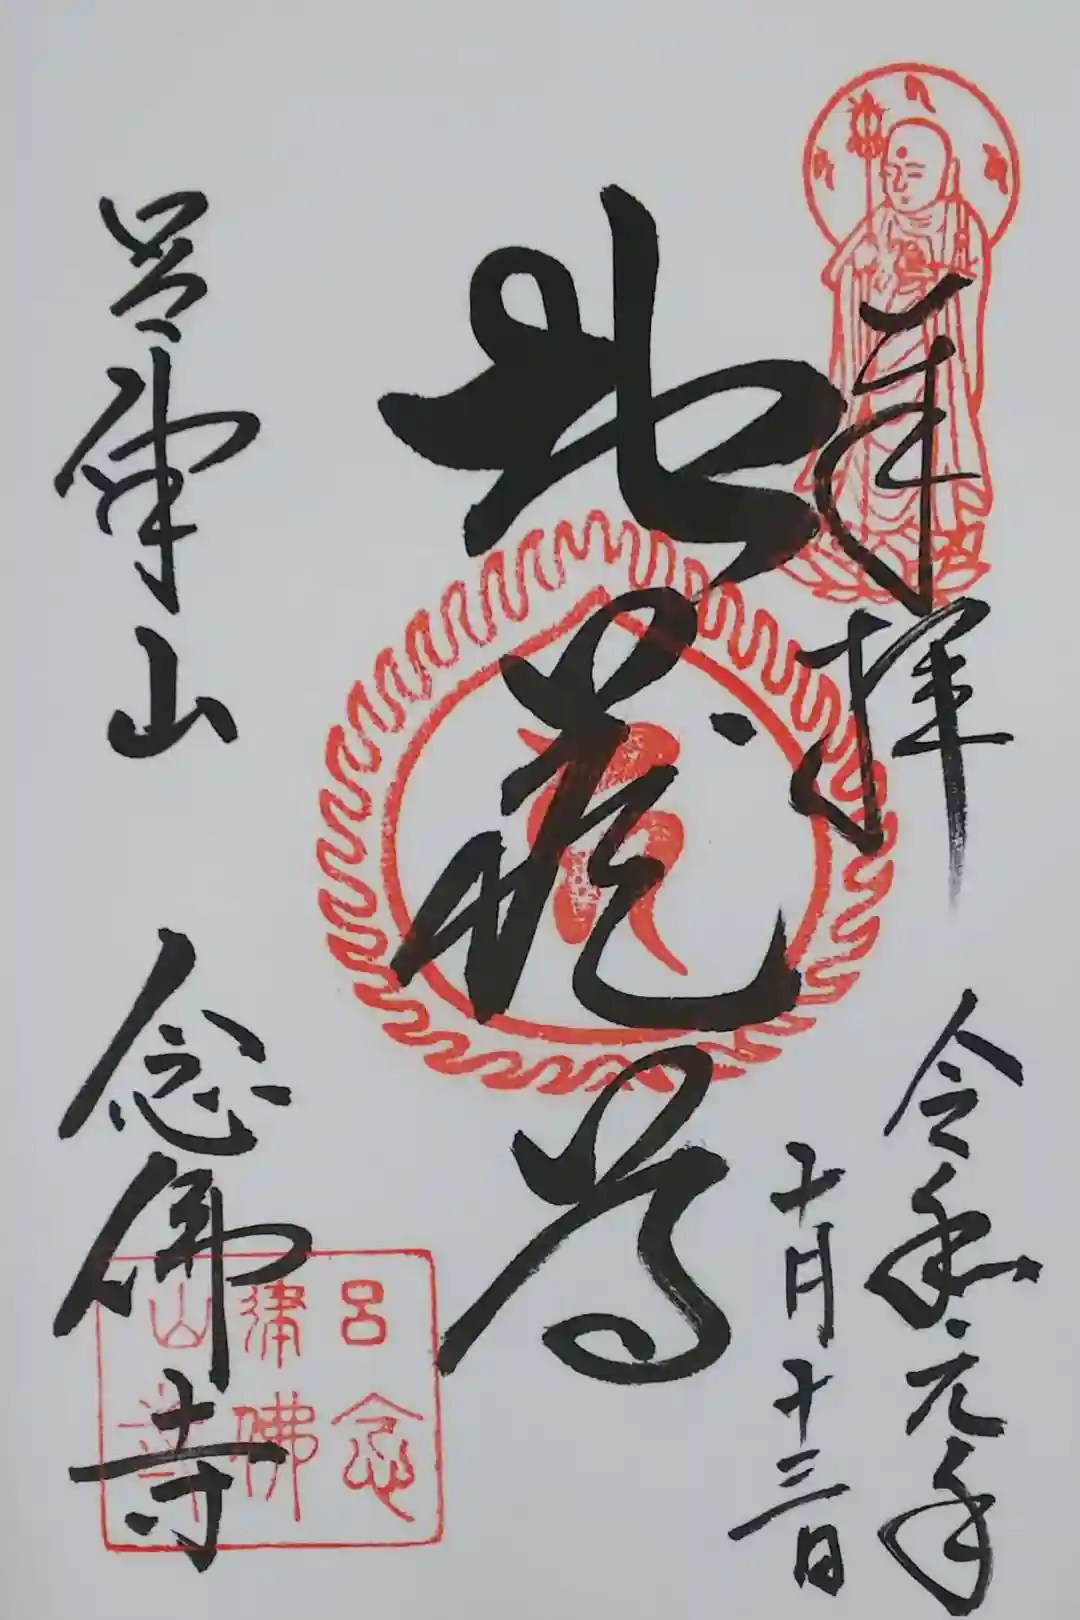 奉拝
令和元年
十月十三日
地蔵尊
呂律山 念佛寺
呂律山
念佛寺